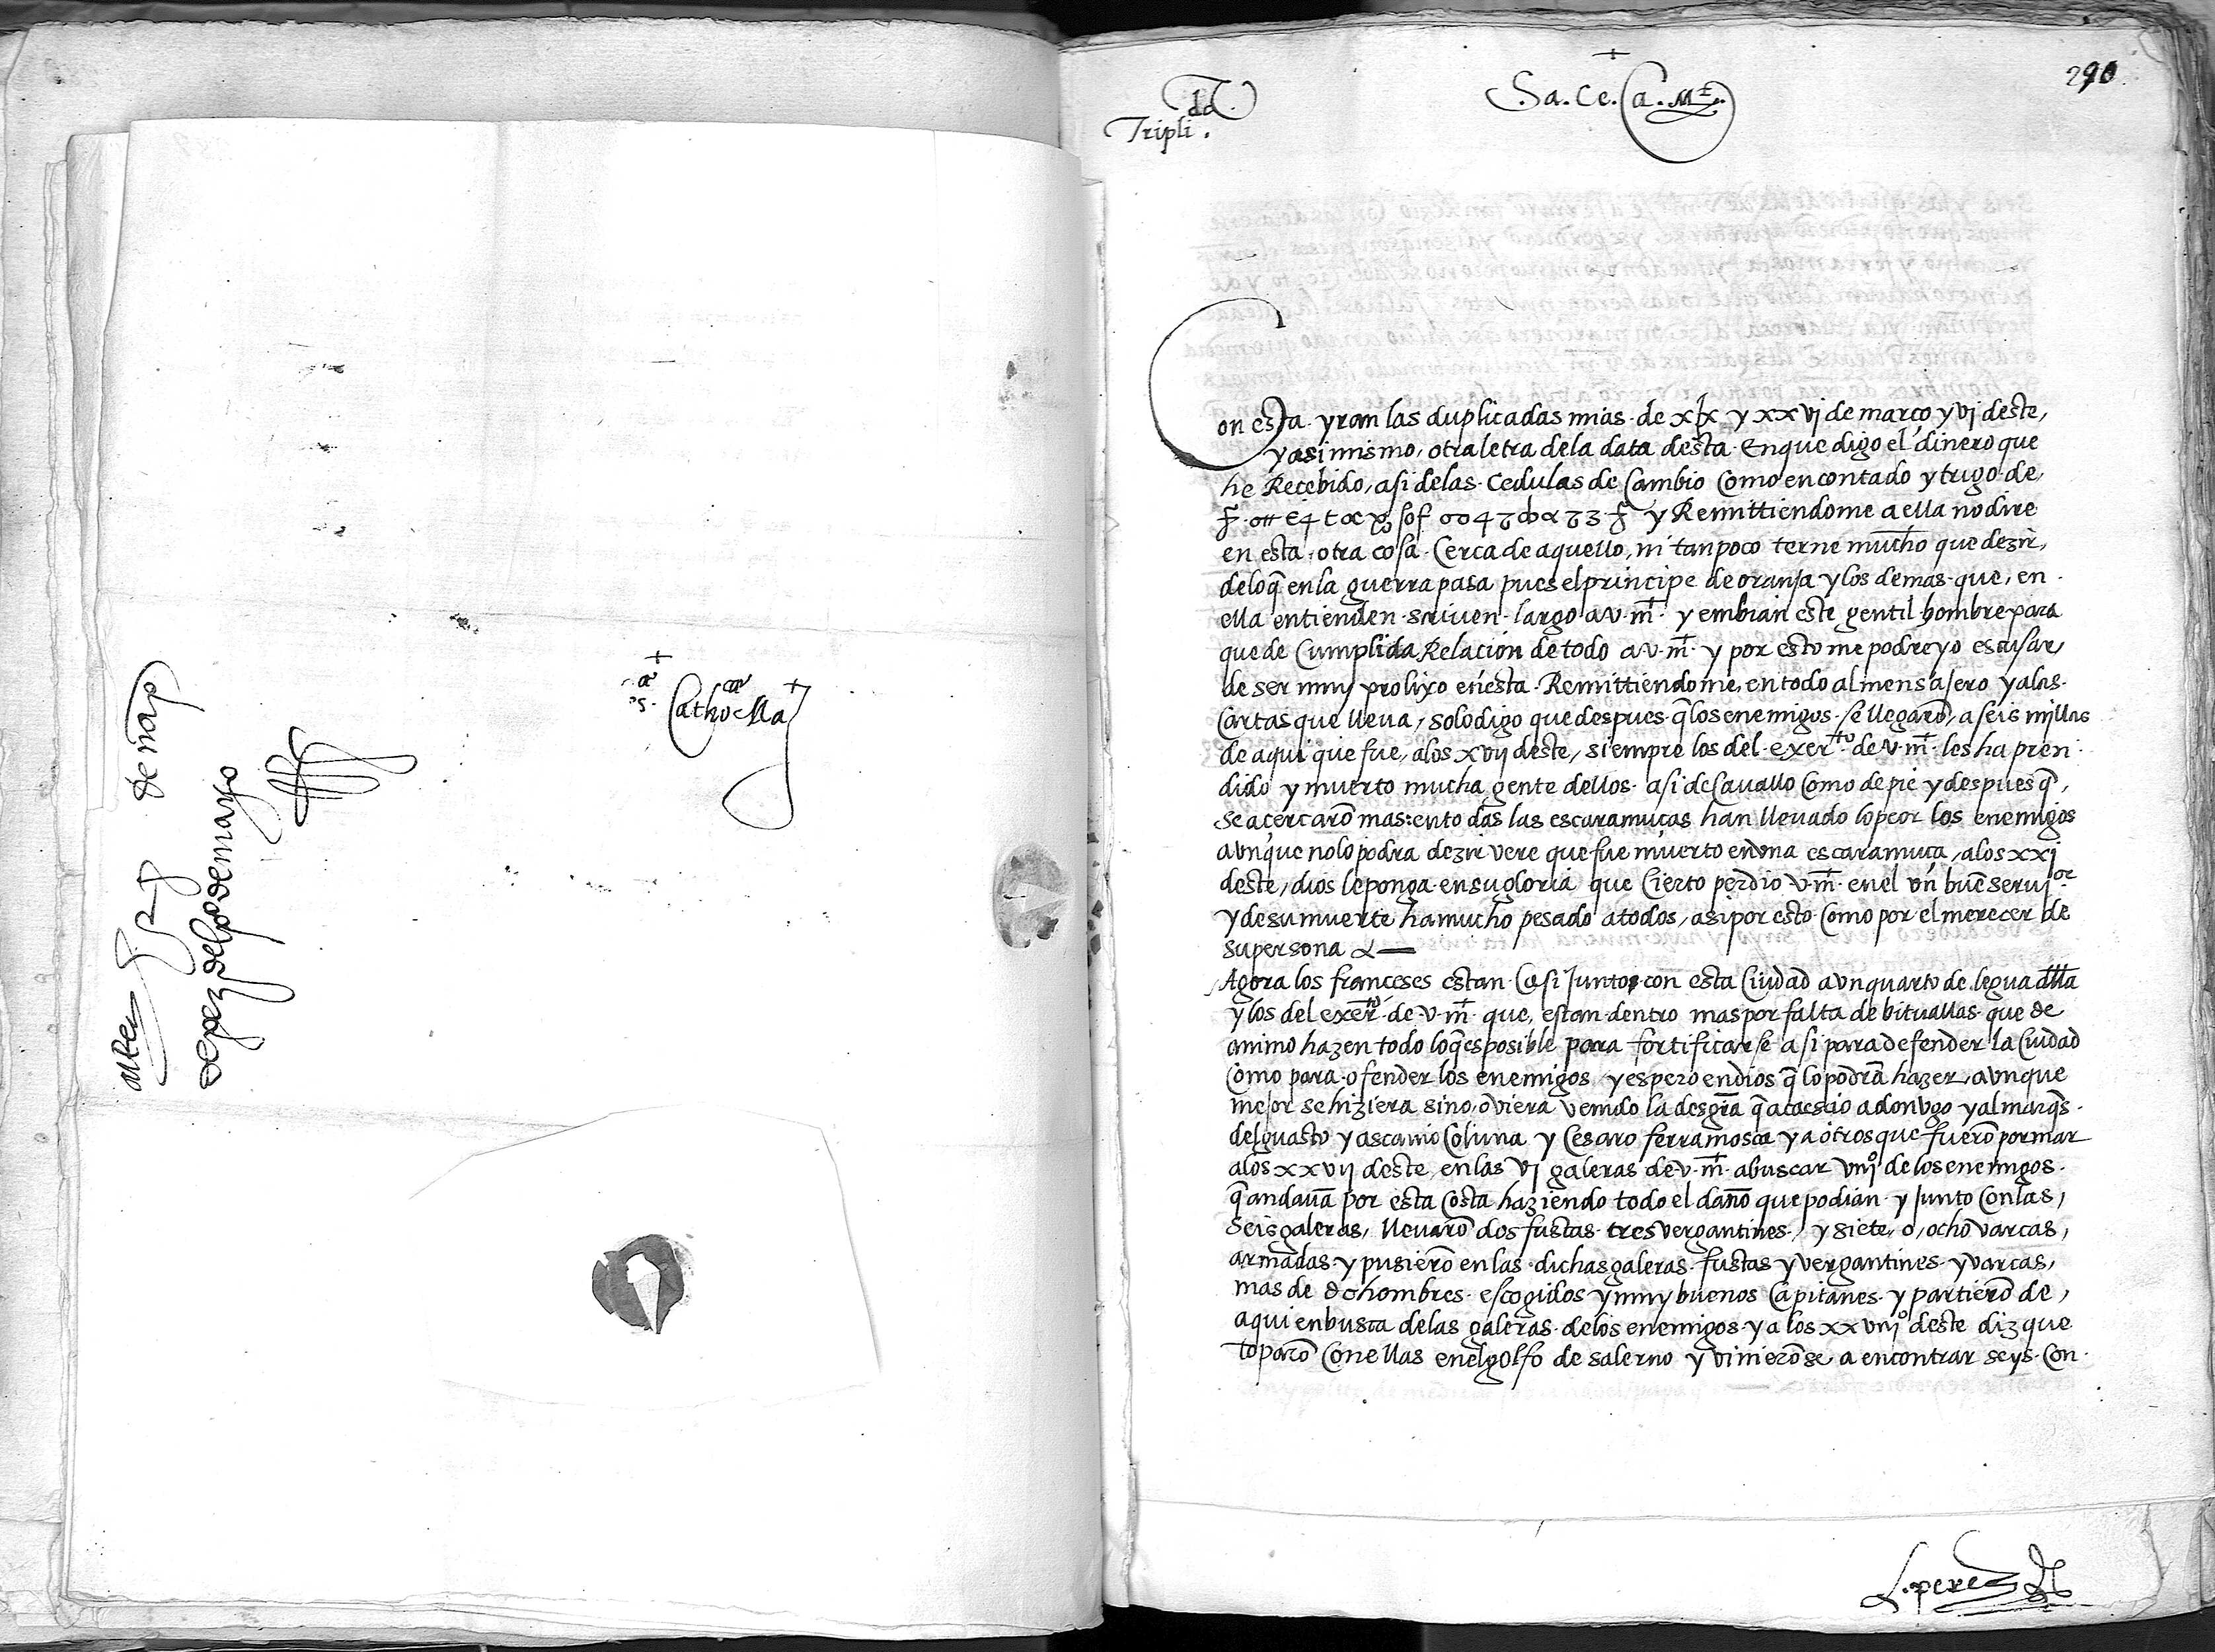 +
S. cª. Cathocª Ma^t
de nap
+
Sa. Ce. Ca. M^t.
290
Tripli^da.
Con esta yran las duplicadas mias de xix y xxvj de março y vj deste,
y asi mismo, otra letra dela data desta. En que digo el dinero que
he Recebido, asi delas Cedulas de Cambio Como en contado y trugo de,
y Remittiendome a ella no dire
en esta otra cosa Cerca de aquello, ni tanpoco terne mucho que dezir,
delo q̃ en la guerra pasa pues el principe de oranja y los demas que, en
ella entienden scriven largo a v. m^t. y embian este gentil hombre para
que de Cumplida Relacion de todo a v. m^t. y por esto me podre yo escusar,
de ser muy prolixo en esta. Remittiendome, en todo al mensajero y alas
Cartas que lleva, solo digo que despues q̃ los enemigos se llegarõ, a seis millas
de aqui que fue, alos xvij deste, siempre los del exer^to. de v. m^t. les ha pren
dido y muerto mucha gente dellos. asi de Cavallo Como de pie y despues q̃,
se acercarõ mas: en todas las escaramuças han llevado lo peor los enemigos
avnque no lo podra dezir vere que fue muerto en vna escaramuça, alos xxj
deste, dios le ponga en su gloria que Cierto perdio v. m^t. en el vn buẽ servj^or
y de su muerte ha mucho pesado a todos, asi por esto Como por el merecer de
su persona &—
Agora los franceses estan Casi Juntos con esta Ciudad a vn quarto de legua dlla
y los del exer^to. de v. m^t. que, estan dentro mas por falta de bituallas que de
animo hazen todo lo q̃ es posible para fortificarse asi para defender la Ciudad
Como para ofender los enemigos y espero en dios q̃ lo podrã hazer, avnque
mejor se hiziera sino, oviera venido la desgr̃a q̃ acaescio a don vgo y al marq̃s
del guasto y ascanio Coluna y Cesaro ferramosca y a otros que fuerõ por mar
alos xxvij deste en las vj galeras de v. m^t. a buscar viijº de los enemigos
q̃ andavã por esta Costa haziendo todo el daño que podian y Junto Con las,
Seis galeras, llevarõ dos fustas tres vergantines, y siete, o, ocho varcas,
armadas y pusierõ en las dichas galeras fustas y vergantines y varcas,
mas de dc hombres escogidos y muy buenos Capitanes y partierõ de,
aqui en busca delas galeras delos enemigos y a los xxviijº deste diz que
toparõ Con ellas en el golfo de salerno y vinierõse a encontrar seys Con
L. perez